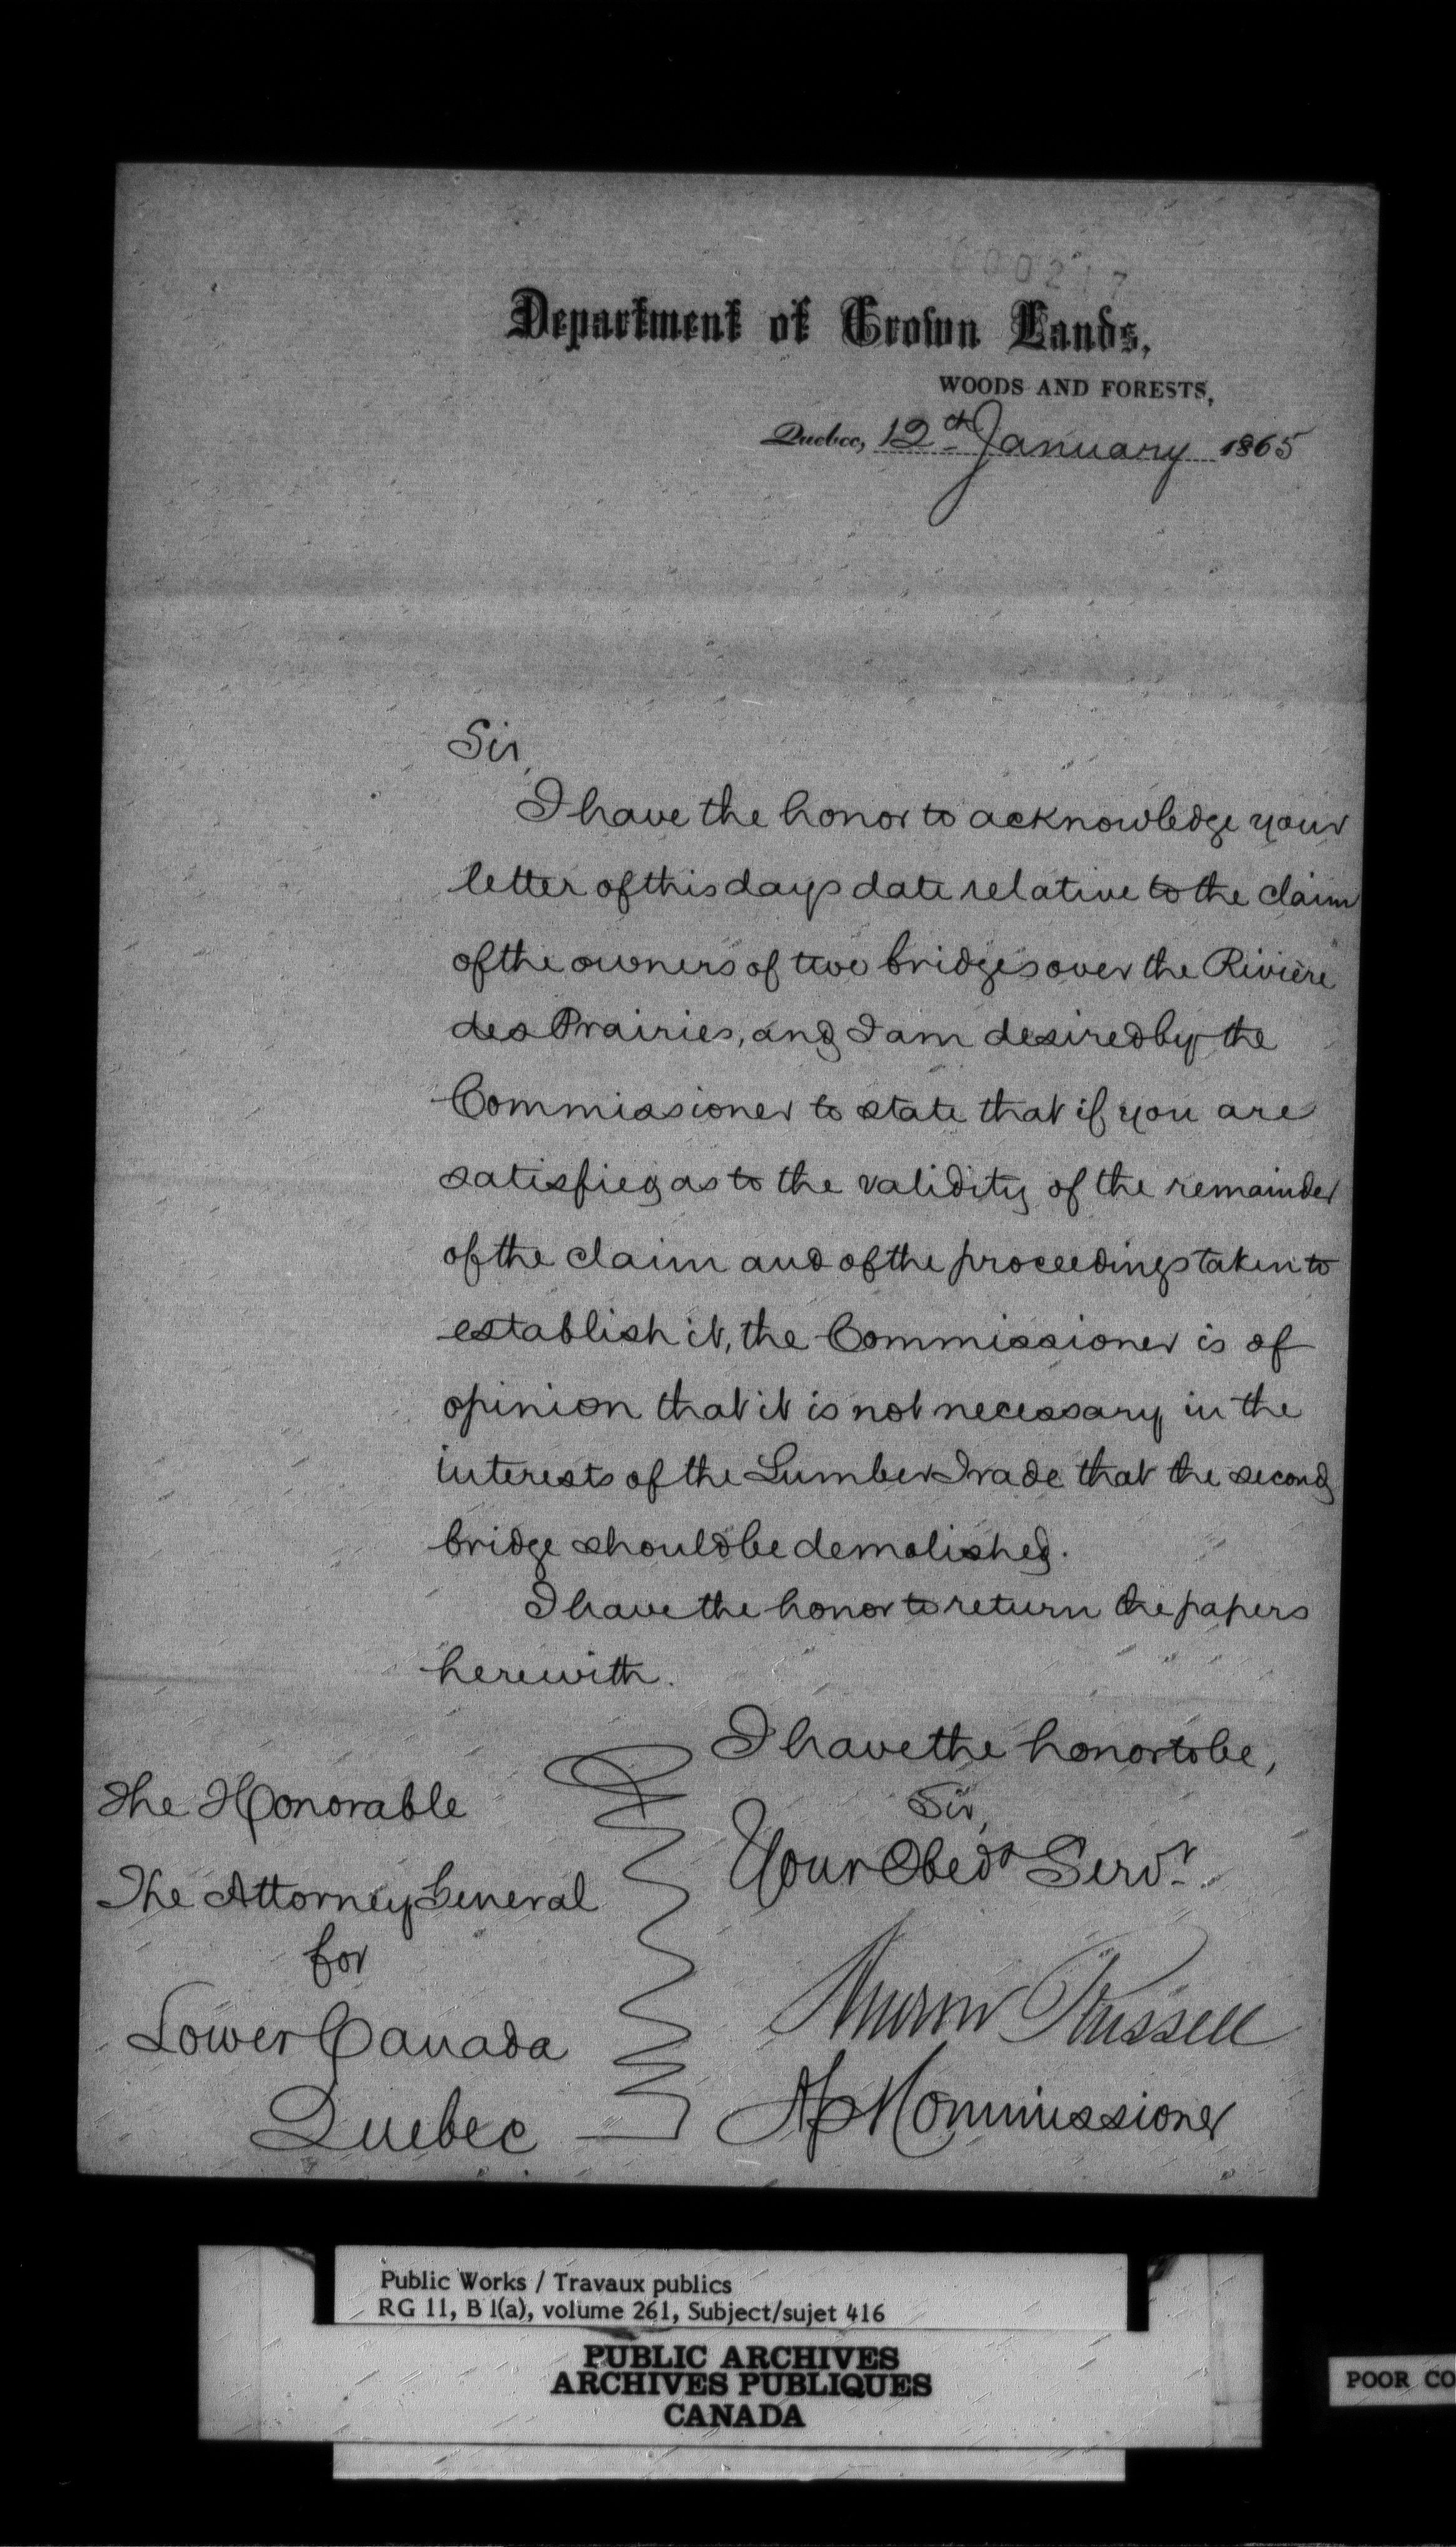 000217
Department of Crown Lands,
WOODS AND FORESTS,
Quebec, 12th January 1865
Sir,
I have the honor to acknowledge your
letter of this days date relative to the claim
of the owners of two bridges over the Rivière
des Prairies, and I am desired by the
Commissioner to state that if you are
satisfied as to the validity of the remainder
of the claim and of the proceedings taken to
establish it, the Commissioner is of
opinion that it is not necessary in the
interests of the Lumber Trade that the second
bridge should be demolished.
I have the honor to return the papers
herewith.
I have the honor to be,
Sir,
Your Obedt Servt.
Andrew Russell
Commissioner
The Honorable
The Attorney General
for
Lower Canada
Quebec
Public Works / Travaux publics
RG 11, B 1(a), volume 261, Subject/sujet 416
PUBLIC ARCHIVES
ARCHIVES PUBLIQUES
CANADA
POOR CO